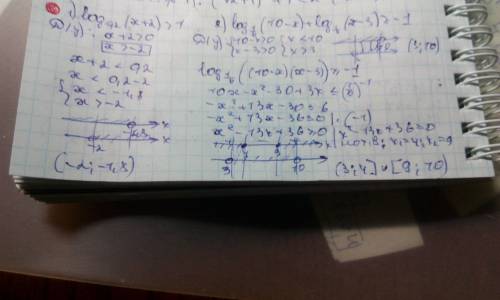 1) log₀,₂ (x+2) > 1
D(y): x+2>0
x>-2
x+2 < 0,2
x < 0,2-2
{ x < -1,8
{ x > -2
-2 -1,8 x
(-2; -1,8)
2) log_1/6 (10-x) + log_1/6 (x-3) ≥ -1
D(y): { 10-x>0 { x<10
{ x-3>0 { x>3
(3; 10)
log_1/6 ((10-x)(x-3)) ≥ -1
10x-x²-30+3x ≤ (1/6)⁻¹
-x²+13x-30 ≤ 6
-x²+13x-36 ≤ 0 | : (-1)
x²-13x+36 ≥ 0
x²-13x+36=0
x₁=4; x₂=9
4 9 x
3 10
(3; 4] ∪ [9; 10)